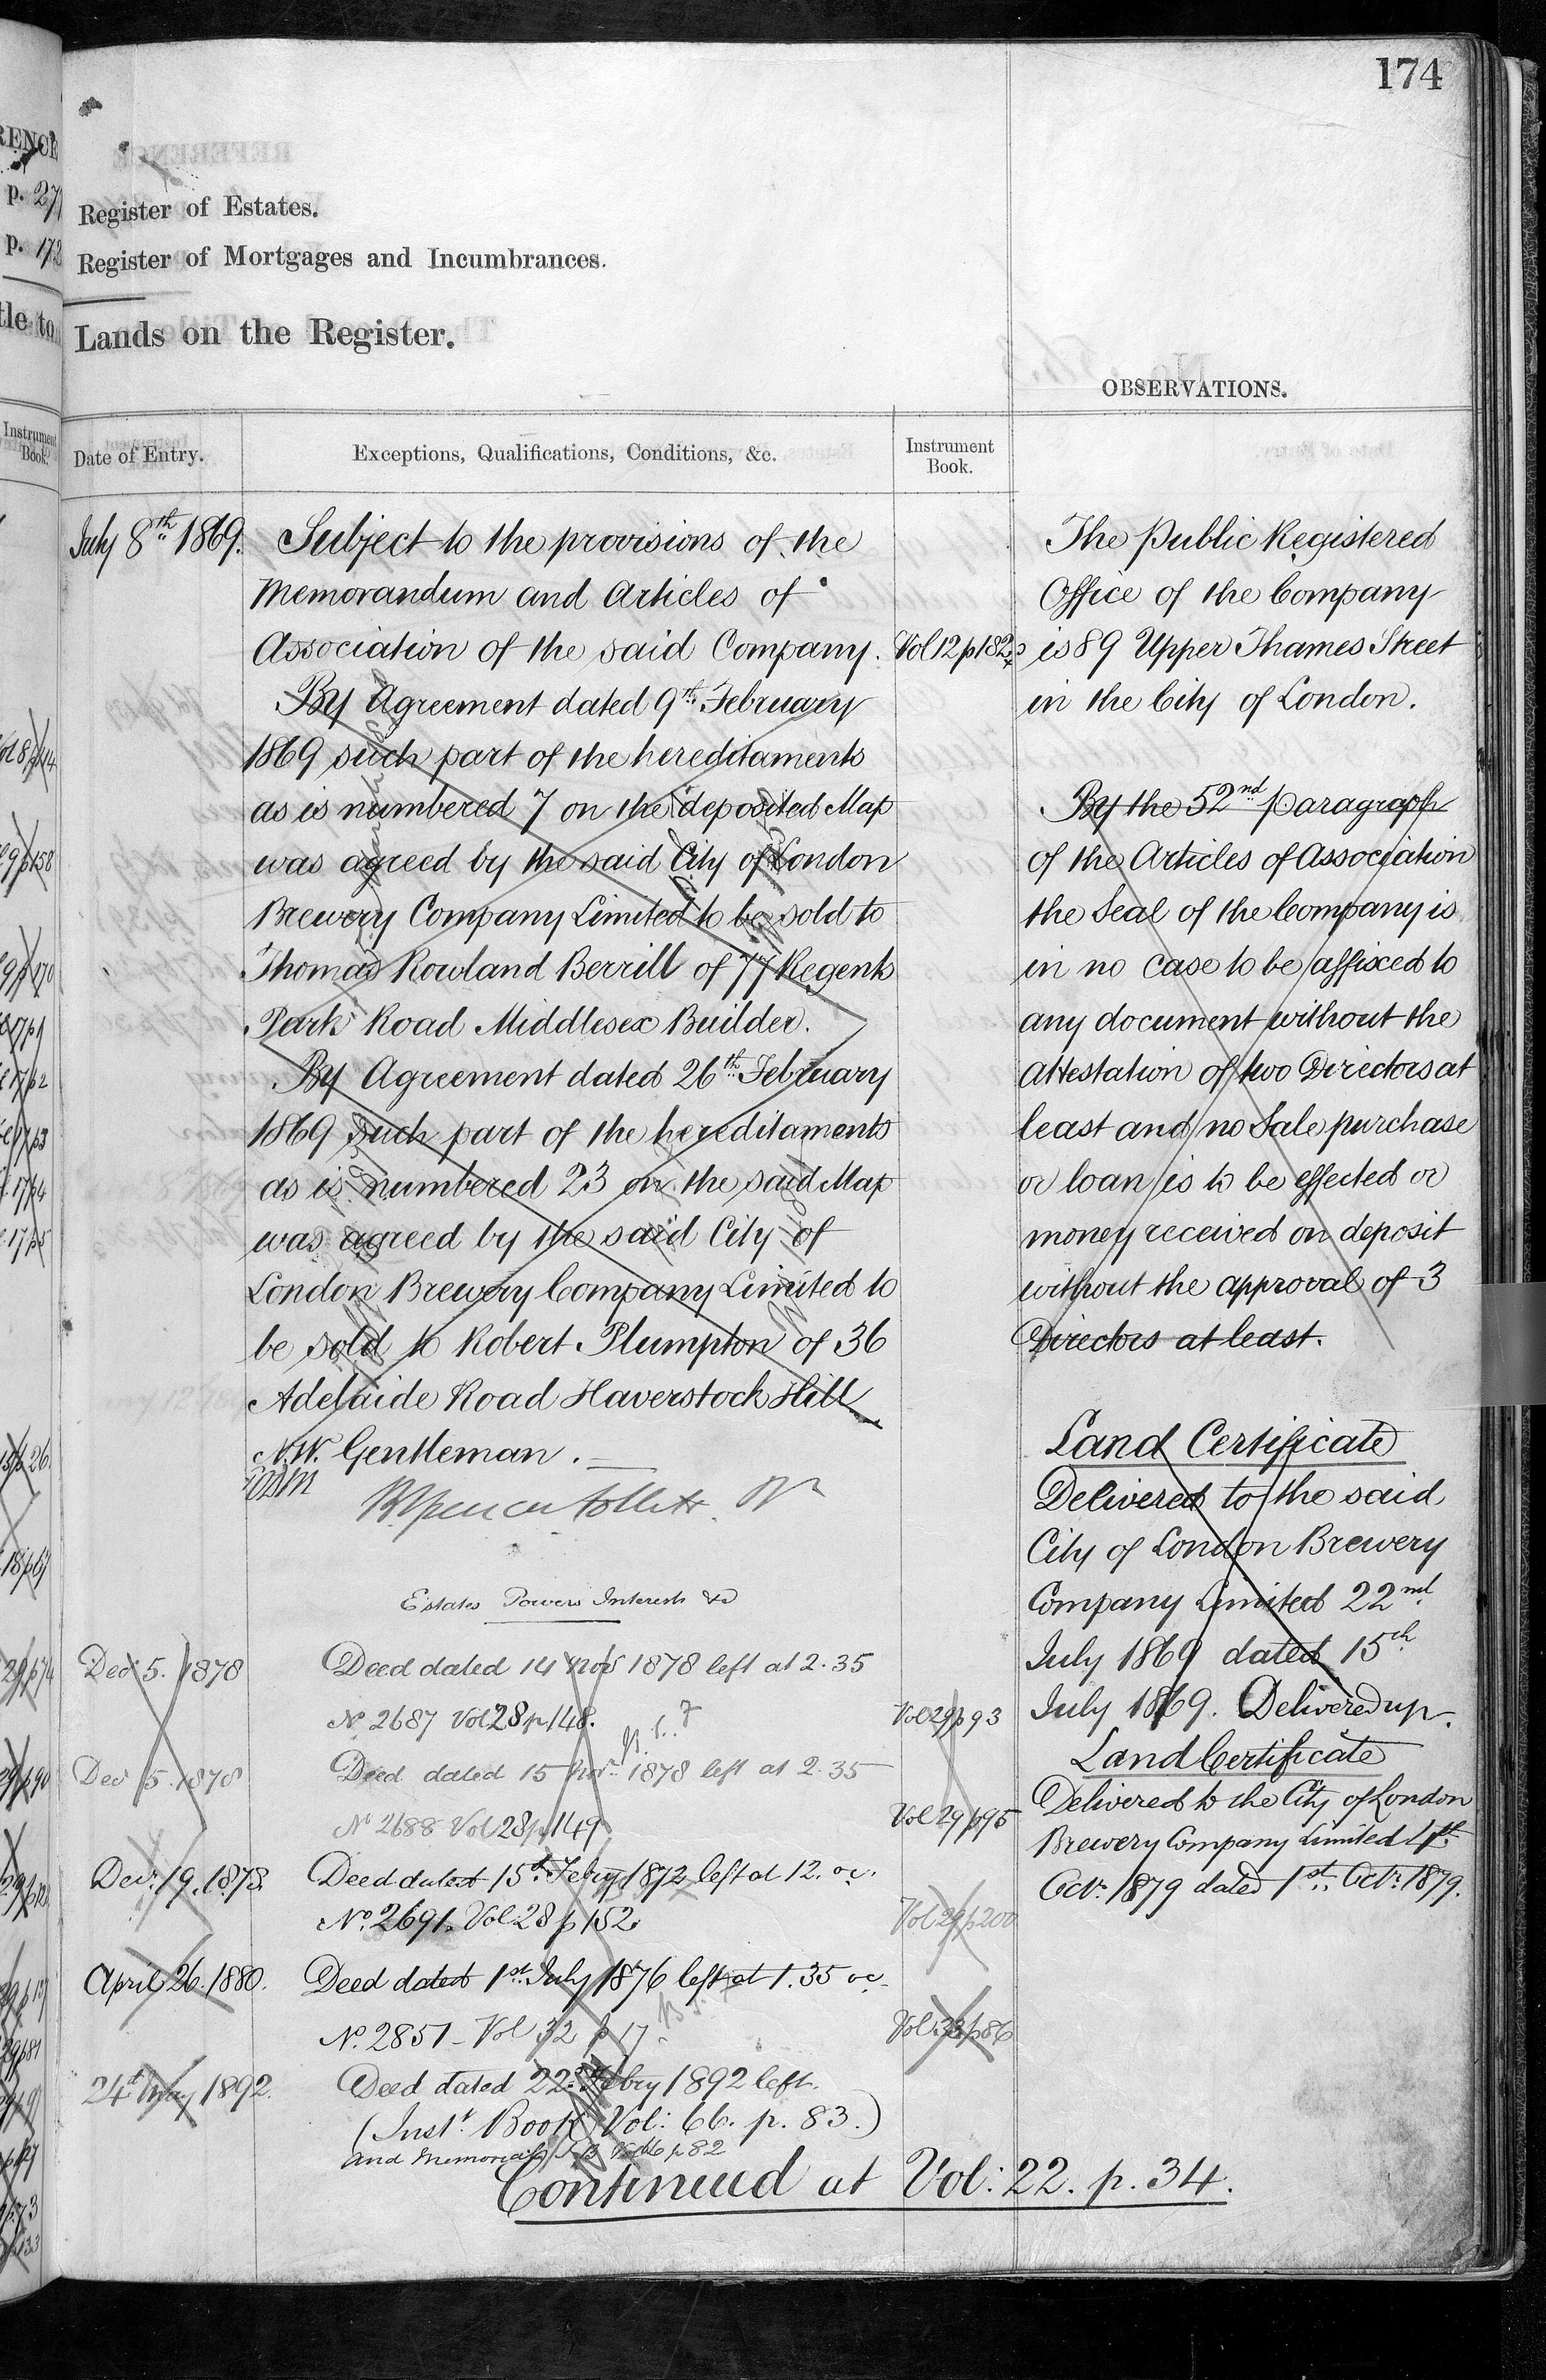 174
Register of Estates.
Register of Mortgages and Incumbrances.
Lands on the Register.
OBSERVATIONS.
Date of Entry.
Exceptions, Qualifications, Conditions, &c.
Instrument
Book.
July 8th 1869.
Subject to the provisions of the
Memorandum and Articles of
Association of the said Company.
Vol 12 p 182
By Agreement dated 9th February
1869 such part of the hereditaments
as is numbered 7 on the deposited Map
was agreed by the said City of London
Brewery Company Limited to be sold to
Thomas Rowland Berrill of 77 Regents
Park Road Middlesex Builder.
By Agreement dated 26th February
1869 such part of the hereditaments
as is numbered 23 on the said Map
was agreed by the said City of
London Brewery Company Limited to
be sold to Robert Plumpton of 36
Adelaide Road Haverstock Hill
N.W. Gentleman.
Estates Powers Interests &c
Decr 5. 1878
Deed dated 14 Novr 1878 left at 2.35
No 2687 Vol 28 p 148.
Vol 29 p 93
Decr 5. 1878
Deed dated 15 Novr 1878 left at 2.35
No 2688 Vol 28 p 149
Vol 29 p 95
Decr 19. 1878
Deed dated 15th Febry 1872 left at 12. oc.
No. 2691. Vol 28 p 152.
Vol 29 p 200
April 26. 1880.
Deed dated 1st July 1876 left at 1.35 oc.
No. 2851 - Vol 32 p 17.
Vol 33 p 86
24th May 1892.
Deed dated 22nd Febry 1892 left.
(Inst. Book Vol: 66. p. 83.)
and Memorial
Continued at Vol: 22. p. 34.
The Public Registered
Office of the Company
is 89 Upper Thames Street
in the City of London.
By the 52nd paragraph
of the Articles of Association
the Seal of the Company is
in no case to be affixed to
any document without the
attestation of two Directors at
least and no Sale purchase
or loan is to be effected or
money received on deposit
without the approval of 3
Directors at least.
Land Certificate
Delivered to the said
City of London Brewery
Company Limited 22nd
July 1869 dated 15th
July 1869. Delivered up.
Land Certificate
Delivered to the City of London
Brewery Company Limited 4th
Octr. 1879 dated 1st. Octr. 1879.